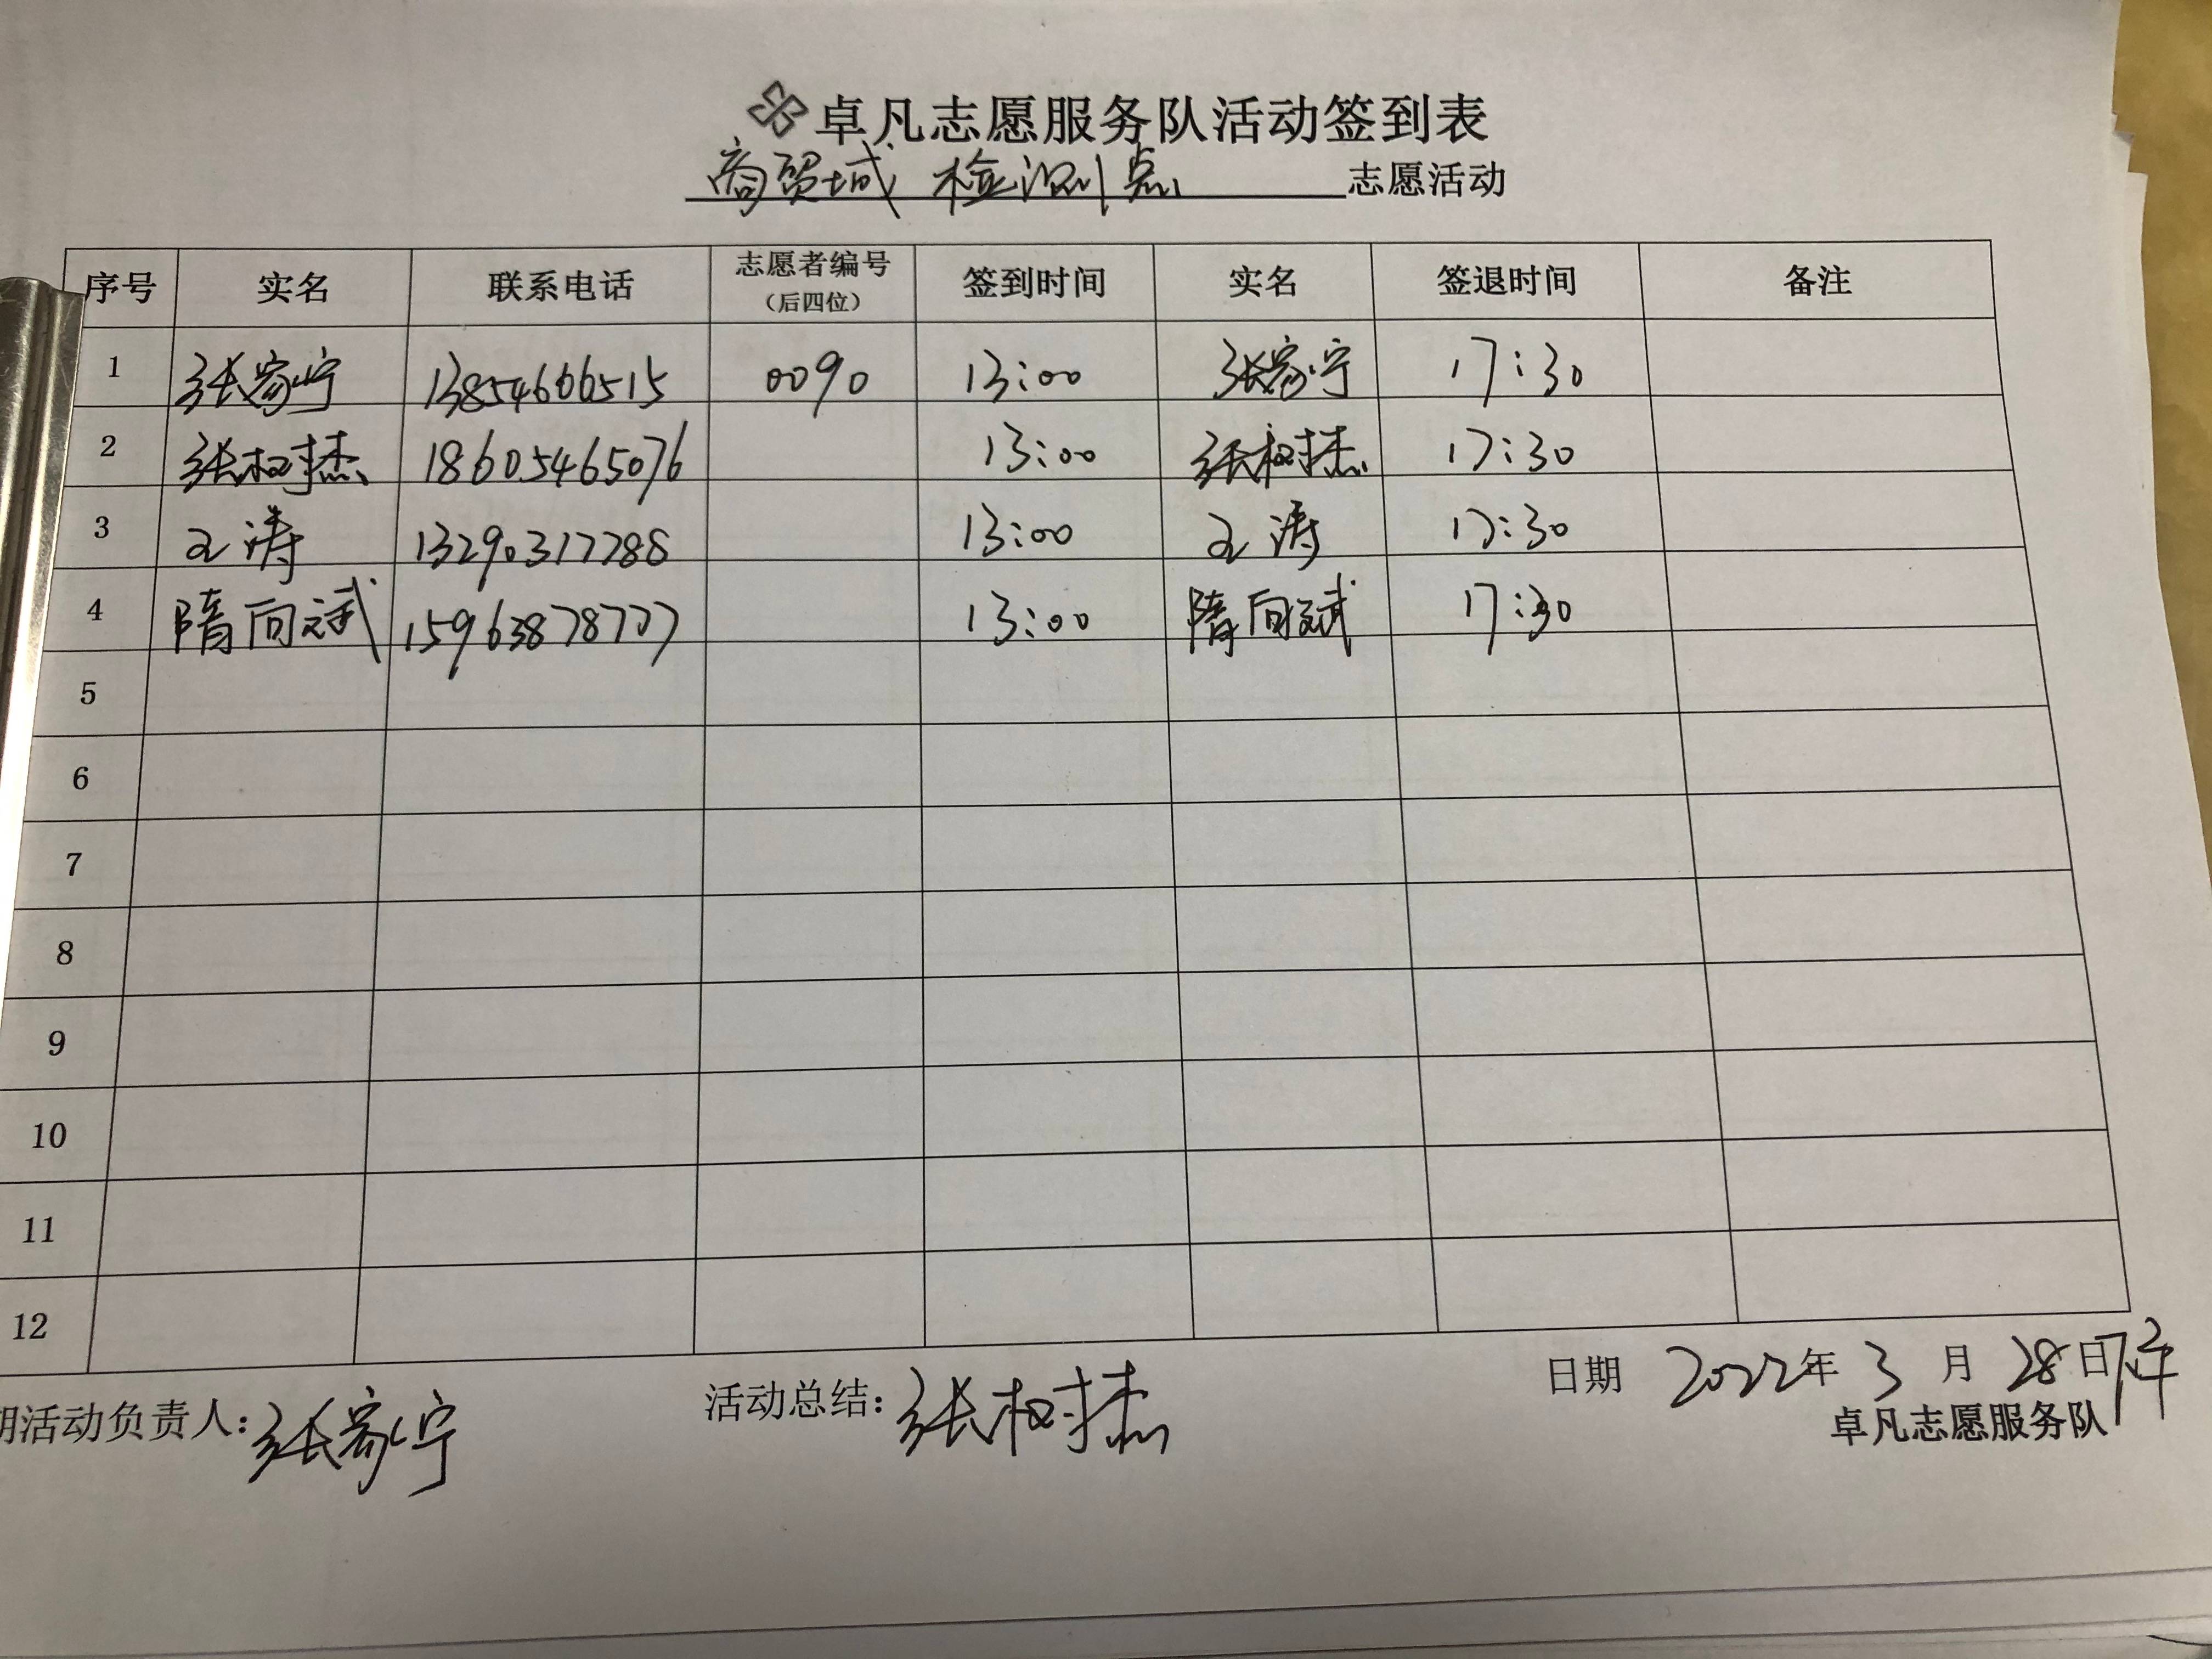 卓凡志愿服务队活动签到表
商贸城 检测点 志愿活动
序号 实名 联系电话 志愿者编号（后四位） 签到时间 实名 签退时间 备注
1 张家宁 13854666515 0090 13:00 张家宁 17:30
2 张树杰 18605465076 13:00 张树杰 17:30
3 王涛 13290317788 13:00 王涛 17:30
4 隋向斌 15963878777 13:00 隋向斌 17:30
5
6
7
8
9
10
11
12
期活动负责人：张家宁 活动总结：张树杰 日期 2022年 3 月 28日下午
卓凡志愿服务队